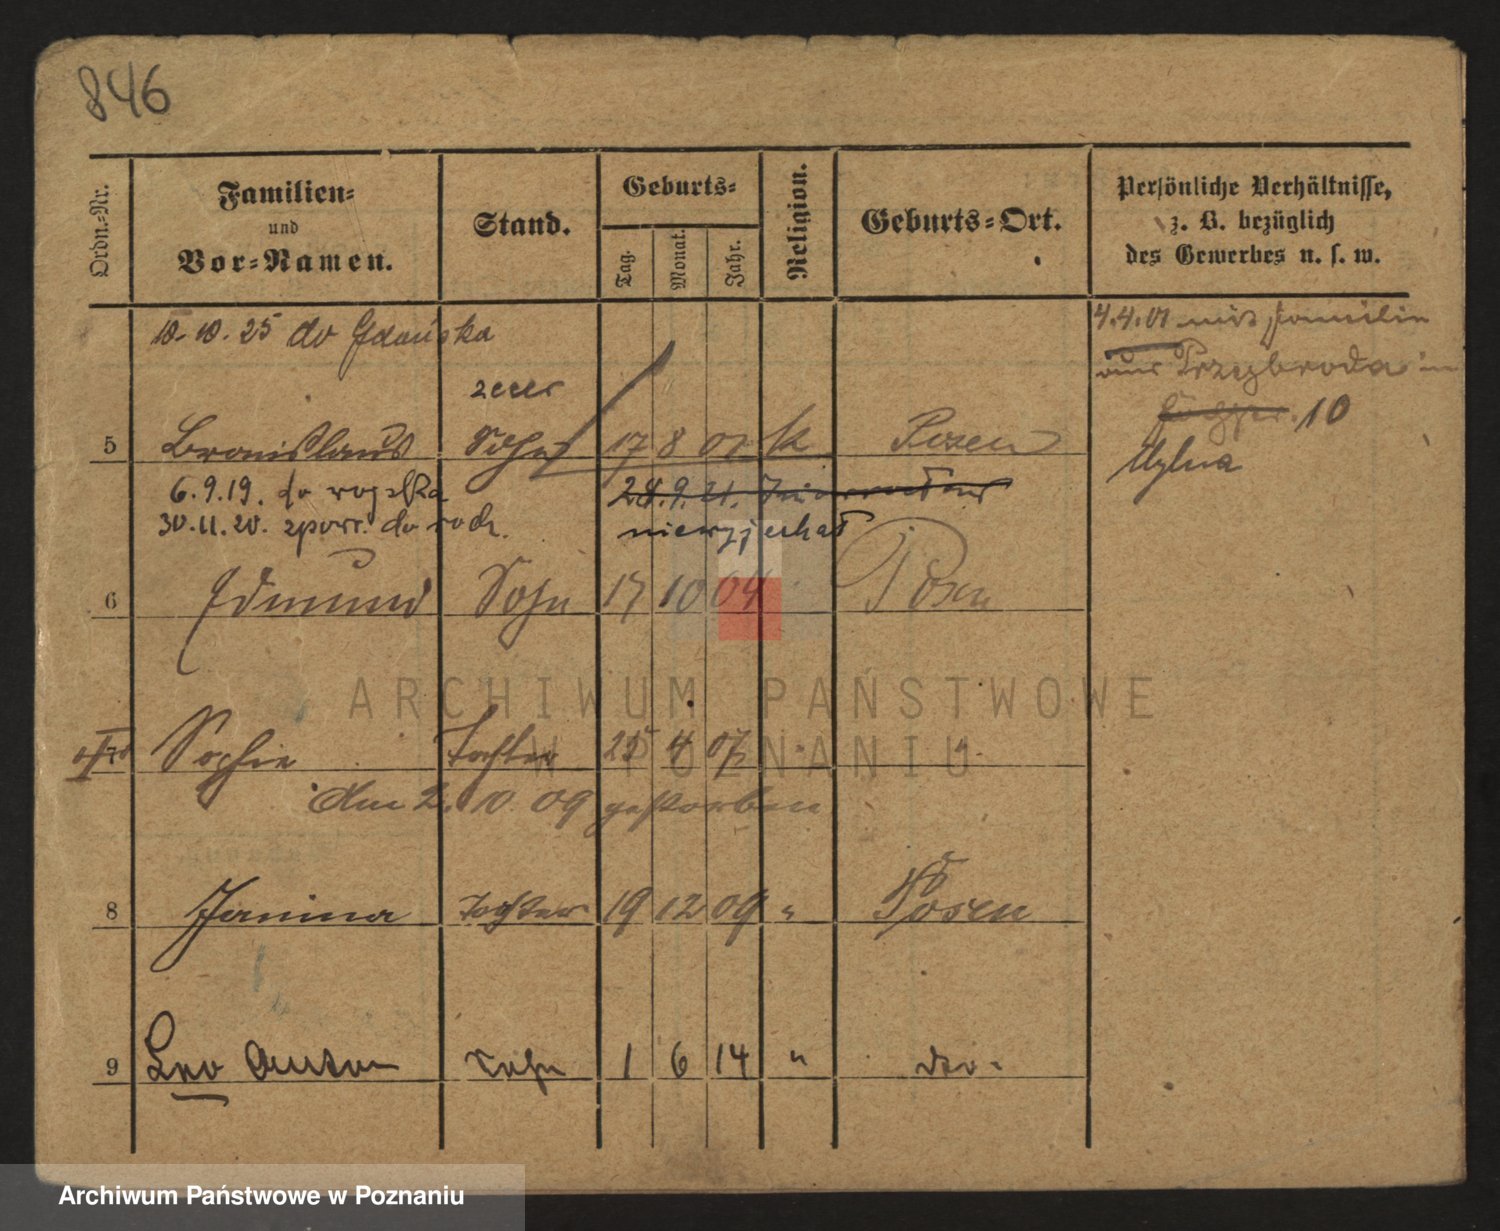 846
Ordn.-Nr.
Familien-
und
Vor-Namen.
Stand.
Geburts-
Tag.
Monat.
Jahr.
Religion.
Geburts-Ort.
Persönliche Verhältnisse,
z. B. bezüglich
des Gewerbes u. s. w.
18.10.25 do Gdańska
4.4.01 mit Familie
aus Przybroda in
10
Mylna
zecer
5 Bronislaus Sohn 17 8 02 k Posen
6.9.19. do
30.11.20. do
24.9.21.
6 Edmund Sohn 17 10 04 Posen
Sophie Tochter 25 4 07 "
Am 2. 10. 09 gestorben
8 Janina Tochter 19 12 09 " Posen
9 Leo Anton Sohn 1 6 14 " dto.
ARCHIWUM PAŃSTWOWE
W POZNANIU
Archiwum Państwowe w Poznaniu